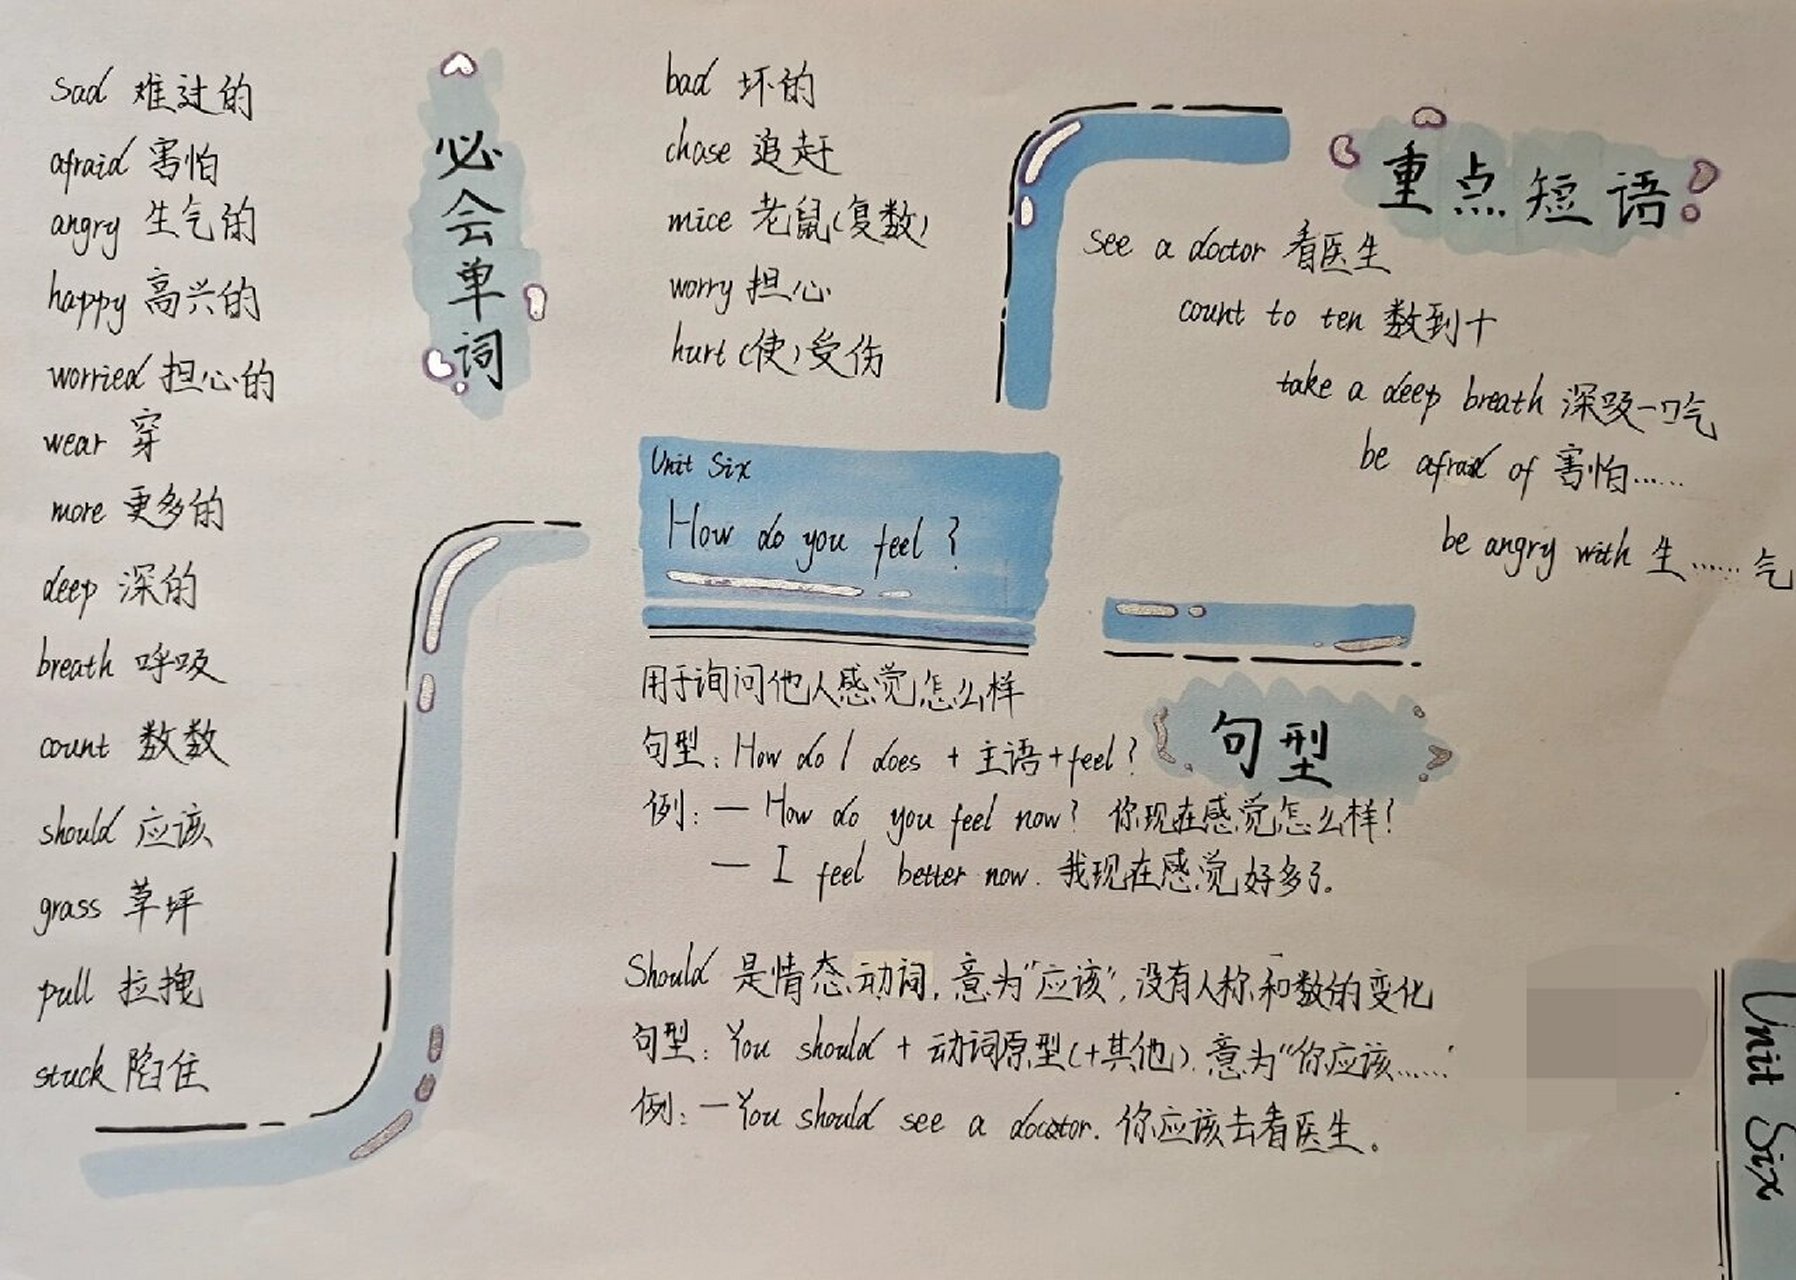 必会单词
sad 难过的
afraid 害怕
angry 生气的
happy 高兴的
worried 担心的
wear 穿
more 更多的
deep 深的
breath 呼吸
count 数数
should 应该
grass 草坪
pull 拉拽
stuck 陷住
bad 坏的
chase 追赶
mice 老鼠(复数)
worry 担心
hurt (使)受伤
重点短语
see a doctor 看医生
count to ten 数到十
take a deep breath 深吸一口气
be afraid of 害怕……
be angry with 生……气
Unit Six
How do you feel?
句型
用于询问他人感觉怎么样
句型: How do / does + 主语+feel?
例: — How do you feel now? 你现在感觉怎么样?
— I feel better now. 我现在感觉好多了。
Should 是情态动词, 意为"应该", 没有人称和数的变化
句型: You should + 动词原型(+其他). 意为"你应该……"
例: —You should see a docotor. 你应该去看医生。
Unit Six